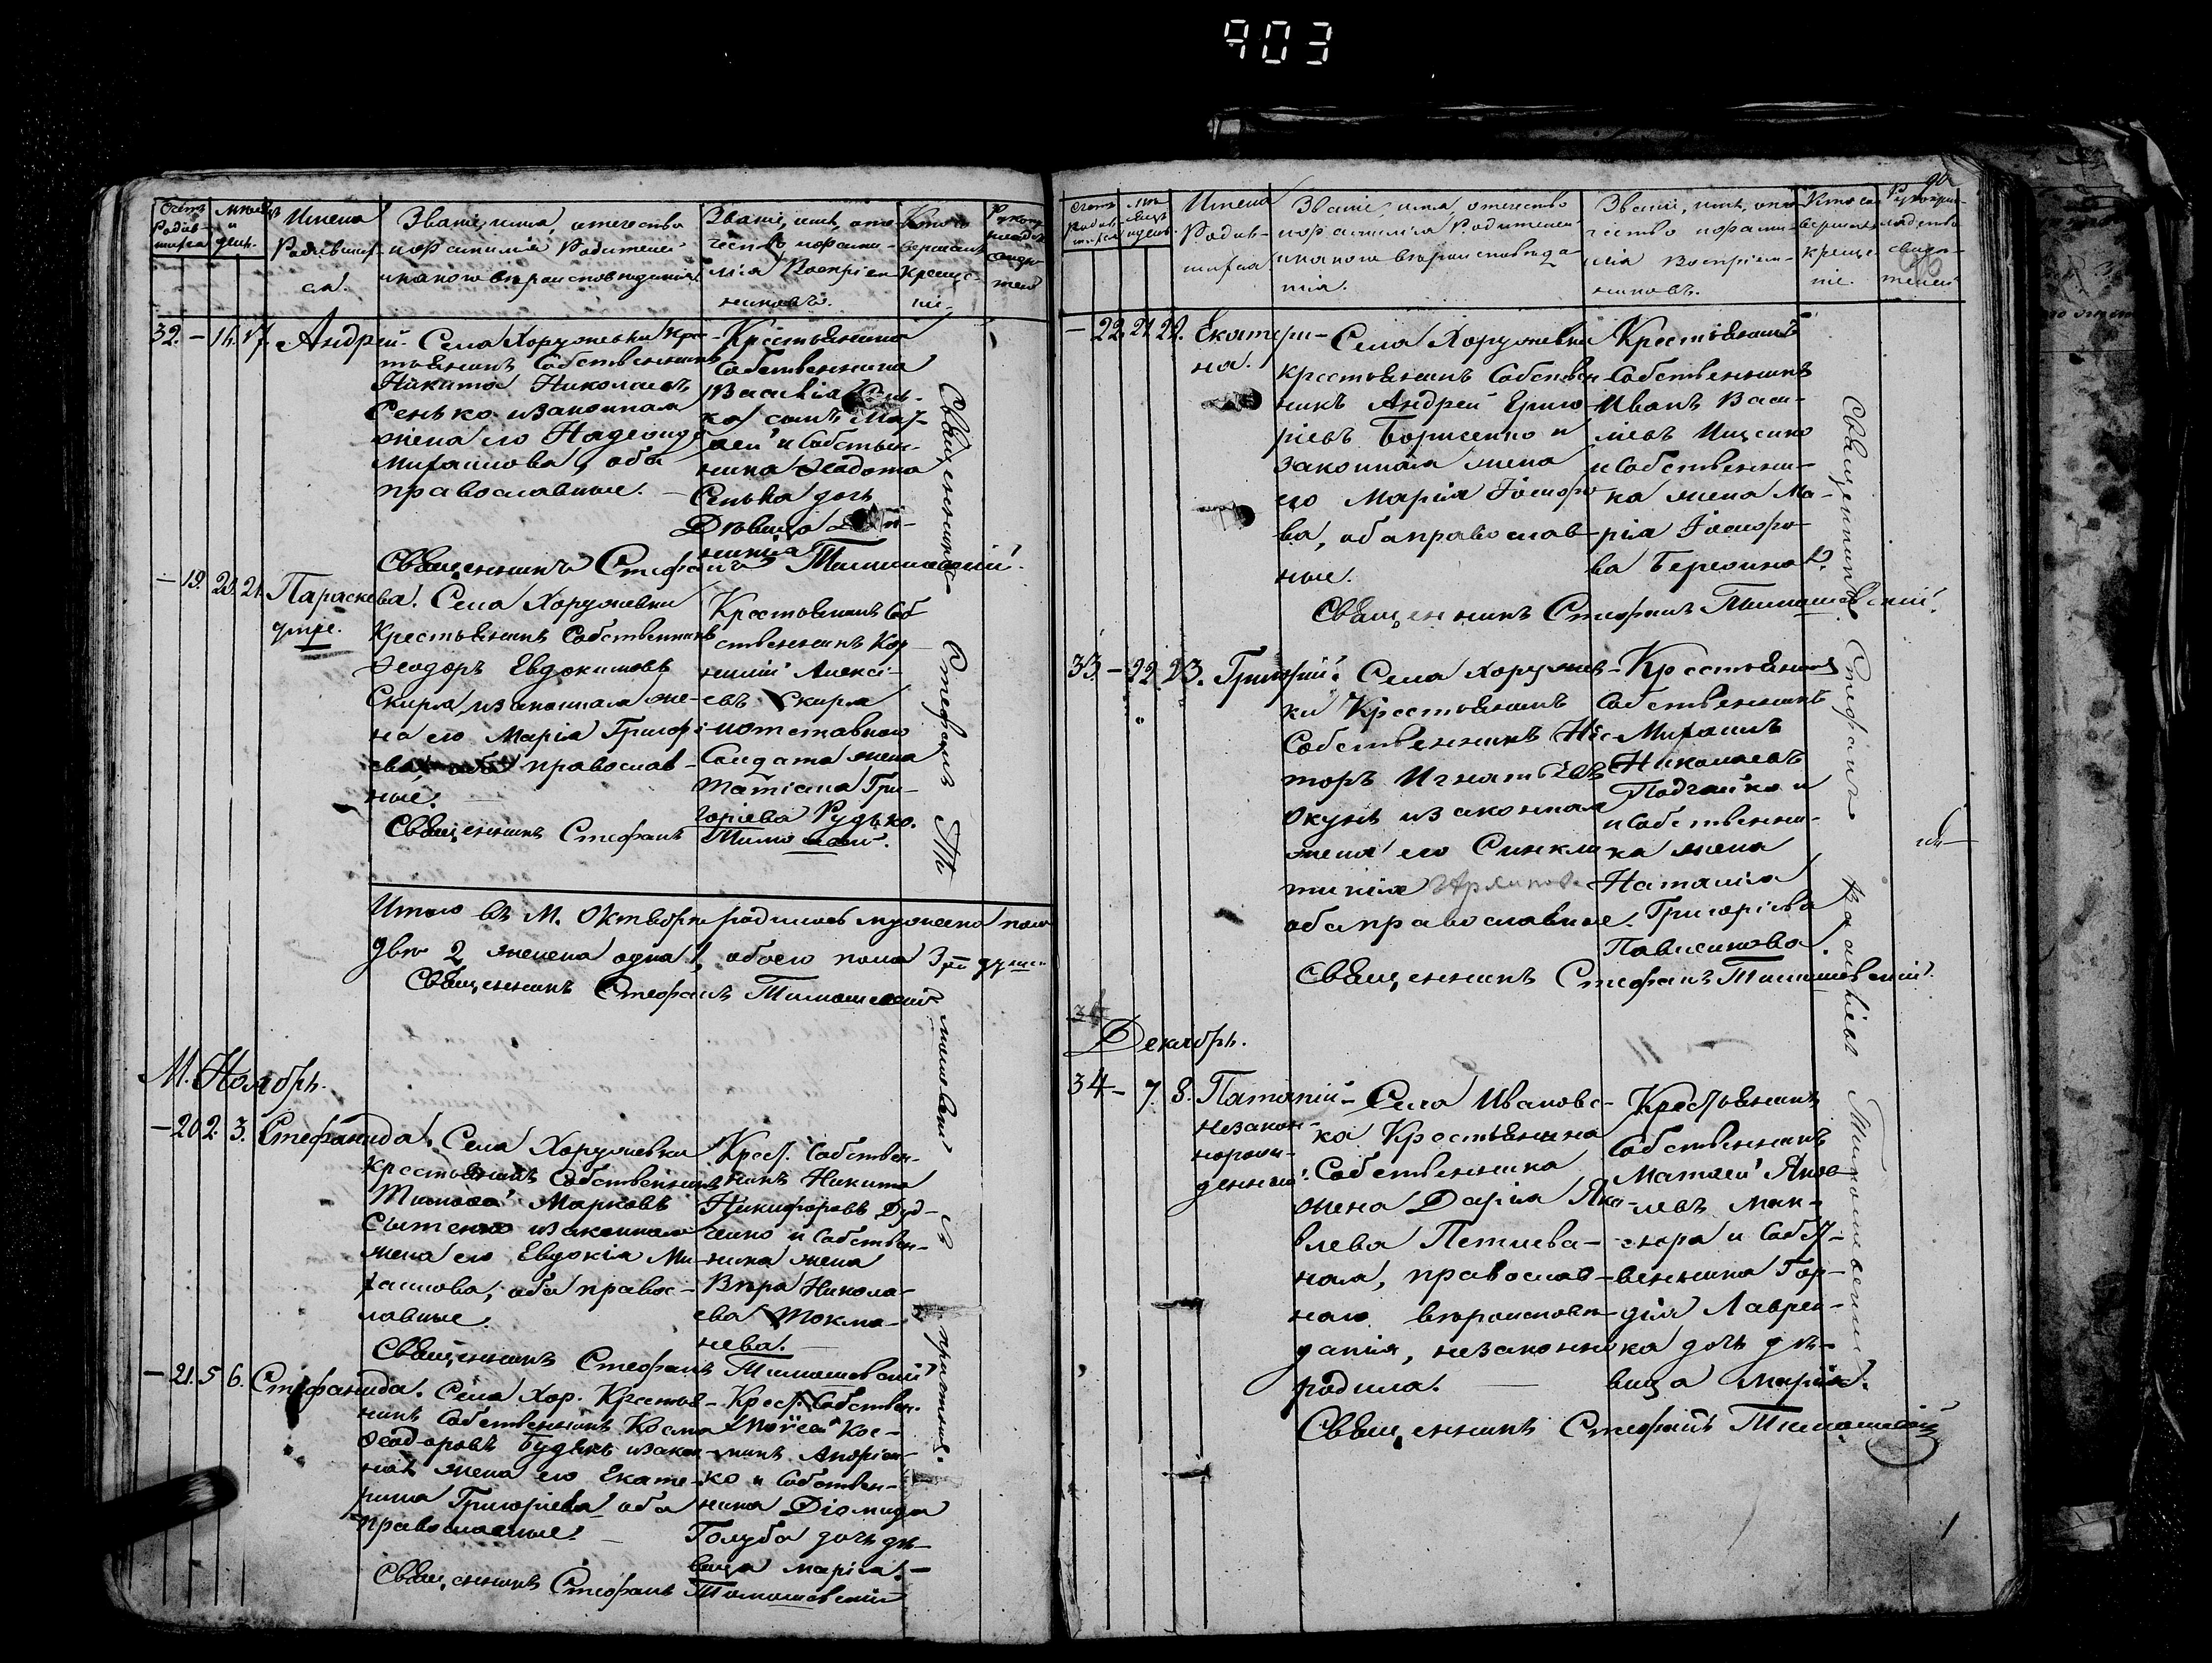 903
Счетъ Родив-шихся
Мѣсяцъ и день.
Имена Родившихся.
Званіе, имя, отечество
и фамилія Родителей
и какого вѣроисповеданія.
Званіе, имя, оте-
чество и фами-
лія Воспріем-
никовъ.
Кто со-
вершалъ
креще-
ніе.
32. - 16. 17. Андрей. Села Хоружевки Кре-
стьянинъ Собственникъ
Никита Николаевъ
Сенько и законная
жена его Надежда
Михаилова, оба
православные. -
Крестьянина
Собственника
Василія Сень-
ка сынъ
и Собствен-
ника Ѳеодота
Сенька дочь
Дѣвица
Священникъ Стефанъ Тимошевскій.
- 19. 20. 21. Параскева. Села Хоружевки
умре.
Крестьянинъ Собственникъ
Ѳеодоръ Евдокимовъ
Скиря, и законная же-
на его Марія Григорі-
ева, оба православ-
ные. -
Крестьянинъ Соб-
ственникъ Кор-
нилій Алексі-
евъ Скиря
и отставного
Солдата жена
Татіана Гри-
горіева Рудько.
Священникъ Стефанъ Тимошевскій.
Итого въ М. Октябрѣ родилось мужеска пола
двое 2 женска одна 1, обоего пола 3 души
Священникъ Стефанъ Тимошевскій
М. Ноябрь.
- 20 2. 3. Стефанида. Села Хоружевки
Крестьянинъ Собственникъ
Тимофей Марковъ
Сытенко и законная
жена его Евдокія Ми-
хаилова, оба правос-
лавные.
Крест. Собствен-
никъ Никита
Никифоровъ Дуд-
ченко и Собствен-
ника жена
Вѣра Никола-
ева Токма-
нева. -
Священникъ Стефанъ Тимошевскій
- 21. 5 6. Стефанида. Села Хор. Крестья-
нинъ Собственникъ Косма
Ѳеодоровъ и закон-
ная жена его Екате-
рина Григоріева оба
православные. -
Крест. Собствен.
Моѵсей Кос-
минъ Андріен-
ко и Собствен-
ника Діомида
Голуба дочь дѣ-
вица Марія. -
Священникъ Стефанъ Тимошевскій
Священникъ Стефанъ Тимошевскій
Счетъ Родив-шихся
Имена
Родив-
шихся
Званіе, имя, отечество
и фамилія Родителей
и какого вѣроисповѣда-
нія.
Званіе, имя, оте-
чество и фами-
лія Воспріем-
никовъ.
Кто со-
вершалъ
креще-
ніе.
Рукопри-
кладство
свиде-
телей
- 22. 21 22. Екатери-
на.
Села Хоружевки
крестьянинъ Собствен-
никъ Андрей Григо-
ріевъ Борисенко и
законная жена
его Марія Іосифо-
ва, оба православ-
ные.
Крестьянинъ
Собственникъ
Иванъ Васи-
ліевъ Ищенко
и Собственни-
ка жена Ма-
рія Іосифо-
ва
Священникъ Стефанъ Тимошевскій.
33. - 22. 23. Григорій. Села Хоружев-
ки Крестьянинъ
Собственникъ Нес-
торъ Игнатьевъ
Окунь и законная
жена его Синкли-
тикія
оба православные.
Крестьянинъ
Собственникъ
Михаилъ
Николаевъ
Подгайко и
и Собственни-
ка жена
Наталія
Григоріева
Священникъ Стефанъ Тимошевскій.
Декабрь.
34 - 7. 8. Патапій
незакон-
норож-
денный.
Села Ивановс-
ка Крестьянина
Собственника
жена Дарія Яко-
влева
ная, православ-
наго вѣроисповѣ-
данія, незаконно
родила. -
Крестьянинъ
Собственникъ
Матѳей Яков-
левъ
и Собст-
венника Гор-
дія Лаврен-
ка дочь дѣ-
вица Марія.
Священникъ Стефанъ Тимошевскій
Священникъ Стефанъ Тимошевскій